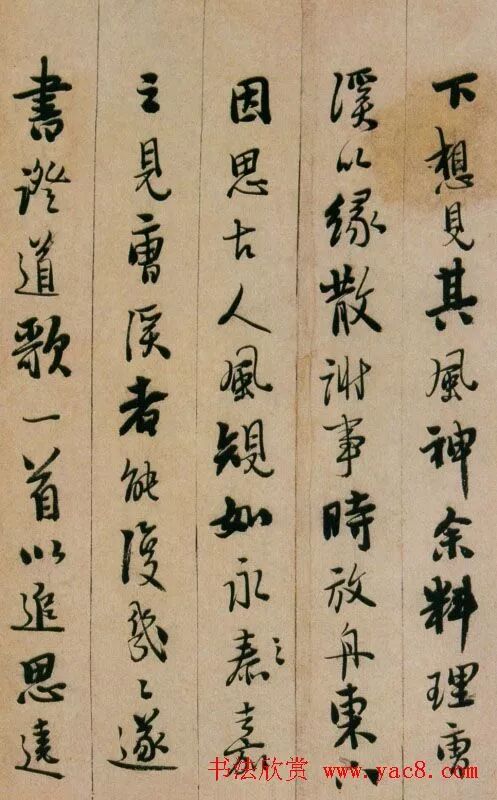 下想見其風神余料理曹
溪以緣散謝事時放舟東下
因思古人風規如永嘉
之見曹溪者能復幾〻遂
書證道歌一首以追思遠
书法欣赏 www.yac8.com